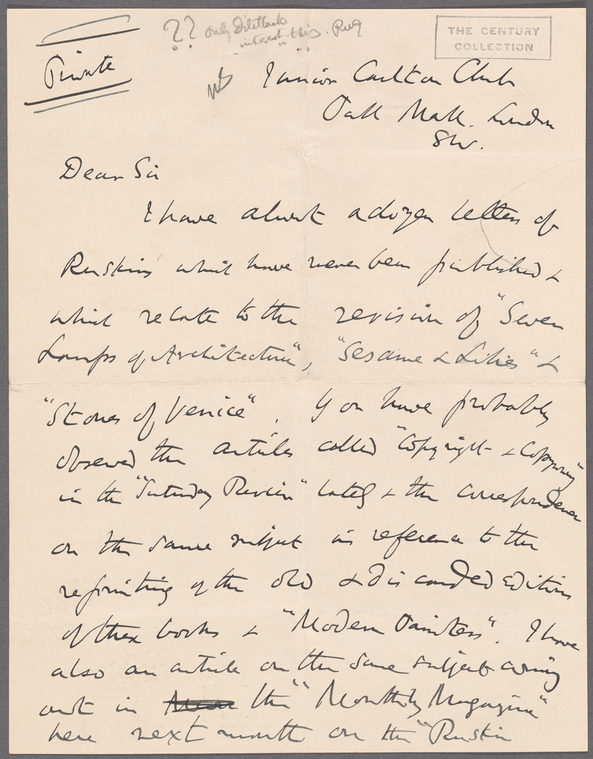 Private
?? only Dilettante
interest in this. RWG
THE CENTURY
COLLECTION
Junior Carlton Club
Pall Mall. London
SW.
Dear Sir
I have about a dozen letters of
Ruskins which have never been published &
which relate to the revision of "Seven
Lamps of Architecture", "Sesame & Lilies" &
"Stones of Venice". You have probably
observed the articles called "Copyright & Copying"
in the "Saturday Review" lately & the correspondence
on the same subject in reference to the
reprinting of the old & discarded editions
of these books & "Modern Painters". I have
also an article on the same subject coming
out in the "Monthly Magazine"
here next month on the "Ruskin